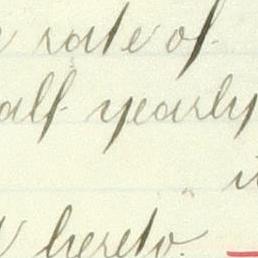 rate of
half yearly
hereto.